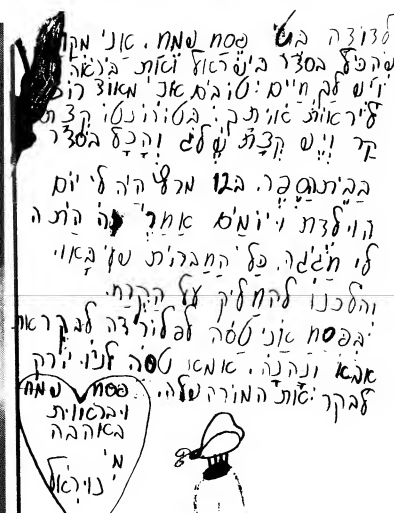 לדודה בט׳ פסח שמח. אני מקוה
שהכל בסדר בישראל ואת בריאה
ויש לך חיים טובים אני מאוד רוצה
ליראות אותך. בטורונטו קצת
קר ויש קצת שלג והכל בסדר
בבית הספר. ב12 מרץ היה לי יום
הולדת ויומים אחרי זה היתה
לי חגגה. כל החברות שלי באו
והלכנו להחליק על הקרח.
בפסח אני טסה לפלורידה לבקר את
אבא ונהנה. אמא טסה לניו יורק
לבקר את המורה שלה.
פסח שמח
ובראוית
באהבה
מ